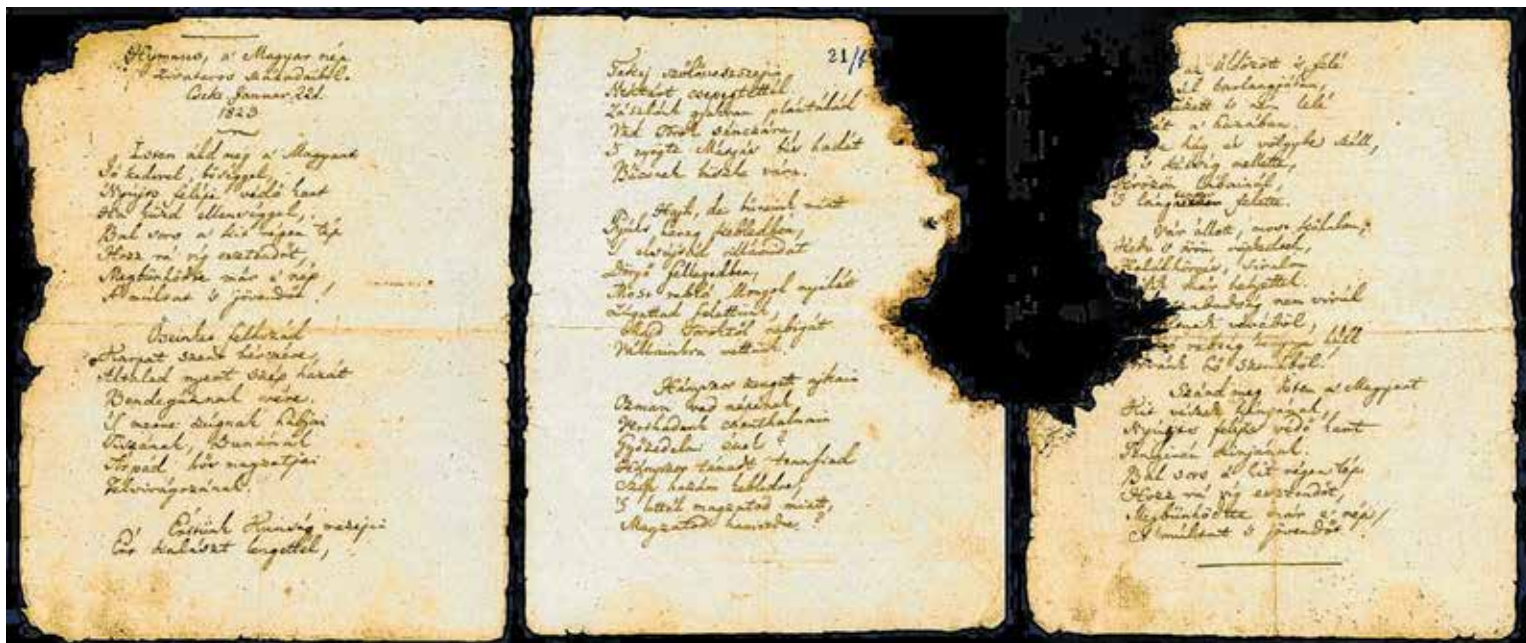 Hymnus, a' Magyar nép
zivataros századaiból.
Cseke Januar. 22d.
1823
Isten áld meg a' Magyart
Jó kedvvel, bőséggel,
Nyújts feléje védő kart
Ha küzd ellenséggel,
Bal sors a kit régen tép
Hozz rá víg esztendőt,
Megbünhödte már e' nép
A' múltat 's jövendőt!
Őseinket felhozád
Kárpát szent bérczére,
Általad nyert szép hazát
Bendegúznak vére.
'S merre zúgnak habjai
Tiszának, Dunának,
Árpád hős magzatjai
Felvirágozának.
Értünk Kunság mezein
Ért kalászt lengettél,
21/4
Tokaj szőlővesszein
Nektárt csepegtettél.
Zászlónk gyakran plántálád
Vad Török sánczára,
'S nyögte Mátyás bús hadát
Bécsnek büszke vára.
Hajh, de bűneink miatt
Gyúlt harag kebledben,
'S elsújtád villámidat
Dörgő fellegedben,
Most rabló Mongol nyilát
Zúgattad felettünk,
Majd Töröktől rabigát
Vállainkra vettünk.
Hányszor zengett ajkain
Ozman vad népének
Vert hadunk csonthalmain
Győzedelmi ének!
Hányszor támadt tenfiad
Szép hazám kebledre,
'S lettél magzatod miatt,
Magzatod hamvedre?
az üldözött 's felé
barlangjában,
's nem lelé
a' hazában.
hág és völgybe száll,
's kétség mellette,
Vérözön lábainál,
'S lángtenger felette.
Vár állott, most kőhalom,
Kedv 's öröm röpkedtek,
Halálhörgés, siralom
már helyettek.
szabadság nem virúl
véréből,
rabság könnye hull
hő szeméből.
Szánd meg Isten a' Magyart
Kit vészek hányának,
Nyújts feléje védő kart
Tengerén kínjának.
Bal sors a' kit régen tép
Hozz rá víg esztendőt,
Megbünhödte már e' nép
A' múltat 's jövendőt!